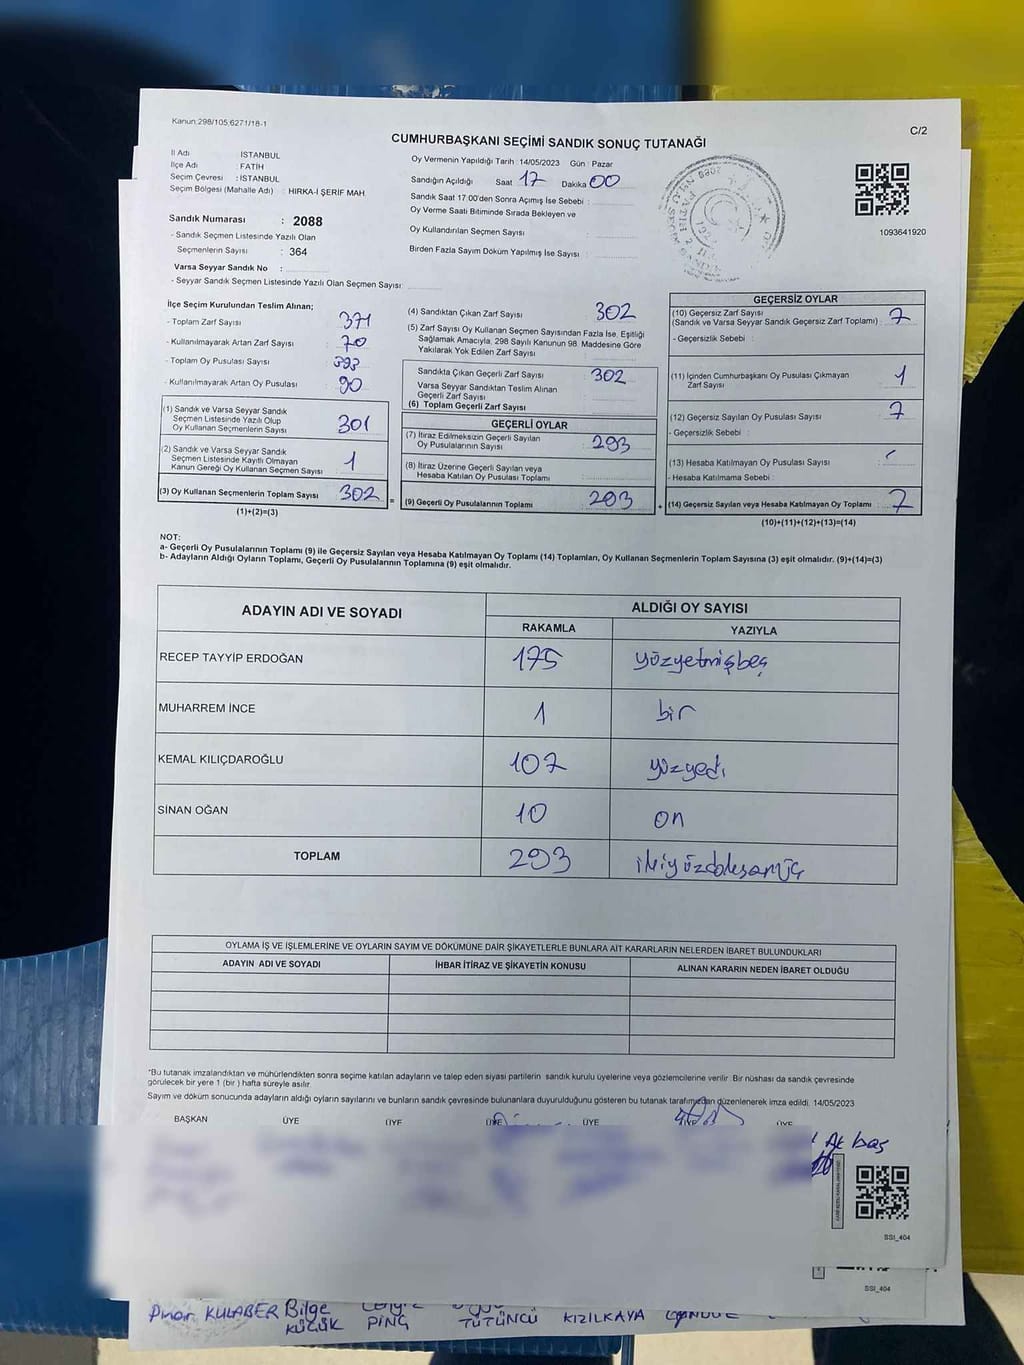 Kanun.298/105,6271/18-1
C/2
CUMHURBAŞKANI SEÇİMİ SANDIK SONUÇ TUTANAĞI
İl Adı : İSTANBUL
İlçe Adı : FATİH
Seçim Çevresi : İSTANBUL
Seçim Bölgesi (Mahalle Adı) : HIRKA-İ ŞERİF MAH
Sandık Numarası : 2088
- Sandık Seçmen Listesinde Yazılı Olan
Seçmenlerin Sayısı : 364
Varsa Seyyar Sandık No :
- Seyyar Sandık Seçmen Listesinde Yazılı Olan Seçmen Sayısı:
Oy Vermenin Yapıldığı Tarih : 14/05/2023 Gün : Pazar
Sandığın Açıldığı Saat 17 Dakika 00
Sandık Saat 17.00'den Sonra Açımış İse Sebebi :
Oy Verme Saati Bitiminde Sırada Bekleyen ve
Oy Kullandırılan Seçmen Sayısı :
Birden Fazla Sayım Döküm Yapılmış İse Sayısı :
1093641920
İlçe Seçim Kurulundan Teslim Alınan;
- Toplam Zarf Sayısı : 371
- Kullanılmayarak Artan Zarf Sayısı : 70
- Toplam Oy Pusulası Sayısı : 393
- Kullanılmayarak Artan Oy Pusulası : 90
(1) Sandık ve Varsa Seyyar Sandık
Seçmen Listesinde Yazılı Olup
Oy Kullanan Seçmenlerin Sayısı : 301
(2) Sandık ve Varsa Seyyar Sandık
Seçmen Listesinde Kayıtlı Olmayan
Kanun Gereği Oy Kullanan Seçmen Sayısı : 1
(3) Oy Kullanan Seçmenlerin Toplam Sayısı : 302
(1)+(2)=(3)
=
(4) Sandıktan Çıkan Zarf Sayısı : 302
(5) Zarf Sayısı Oy Kullanan Seçmen Sayısından Fazla İse, Eşitliği
Sağlamak Amacıyla, 298 Sayılı Kanunun 98. Maddesine Göre
Yakılarak Yok Edilen Zarf Sayısı :
Sandıkta Çıkan Geçerli Zarf Sayısı : 302
Varsa Seyyar Sandıktan Teslim Alınan
Geçerli Zarf Sayısı :
(6) Toplam Geçerli Zarf Sayısı
GEÇERLİ OYLAR
(7) İtiraz Edilmeksizin Geçerli Sayılan
Oy Pusulalarının Sayısı : 293
(8) İtiraz Üzerine Geçerli Sayılan veya
Hesaba Katılan Oy Pusulası Toplamı :
(9) Geçerli Oy Pusulalarının Toplamı : 293
+
GEÇERSİZ OYLAR
(10) Geçersiz Zarf Sayısı
(Sandık ve Varsa Seyyar Sandık Geçersiz Zarf Toplamı) : 7
- Geçersizlik Sebebi :
(11) İçinden Cumhurbaşkanı Oy Pusulası Çıkmayan
Zarf Sayısı : 1
(12) Geçersiz Sayılan Oy Pusulası Sayısı : 7
- Geçersizlik Sebebi :
(13) Hesaba Katılmayan Oy Pusulası Sayısı :
- Hesaba Katılmama Sebebi :
(14) Geçersiz Sayılan veya Hesaba Katılmayan Oy Toplamı : 7
(10)+(11)+(12)+(13)=(14)
NOT:
a- Geçerli Oy Pusulalarının Toplamı (9) ile Geçersiz Sayılan veya Hesaba Katılmayan Oy Toplamı (14) Toplamları, Oy Kullanan Seçmenlerin Toplam Sayısına (3) eşit olmalıdır. (9)+(14)=(3)
b- Adayların Aldığı Oyların Toplamı, Geçerli Oy Pusulalarının Toplamına (9) eşit olmalıdır.
ADAYIN ADI VE SOYADI ALDIĞI OY SAYISI
RAKAMLA YAZIYLA
RECEP TAYYİP ERDOĞAN 175 yüzyetmişbeş
MUHARREM İNCE 1 bir
KEMAL KILIÇDAROĞLU 107 yüzyedi
SİNAN OĞAN 10 on
TOPLAM 293 ikiyüzdoksanüç
OYLAMA İŞ VE İŞLEMLERİNE VE OYLARIN SAYIM VE DÖKÜMÜNE DAİR ŞİKAYETLERLE BUNLARA AİT KARARLARIN NELERDEN İBARET BULUNDUKLARI
ADAYIN ADI VE SOYADI İHBAR İTİRAZ VE ŞİKAYETİN KONUSU ALINAN KARARIN NEDEN İBARET OLDUĞU
*Bu tutanak imzalandıktan ve mühürlendikten sonra seçime katılan adayların ve talep eden siyasi partilerin sandık kurulu üyelerine veya gözlemcilerine verilir. Bir nüshası da sandık çevresinde
görülecek bir yere 1 (bir) hafta süreyle asılır.
Sayım ve döküm sonucunda adayların aldığı oyların sayılarını ve bunların sandık çevresinde bulunanlara duyurulduğunu gösteren bu tutanak tarafımızdan düzenlenerek imza edildi. 14/05/2023
BAŞKAN ÜYE ÜYE ÜYE ÜYE ÜYE
Akbaş
SSI_404
SSI_404
Pınar KULABER Bilge
KÜÇÜK PİNÇ TÜTÜNCÜ KIZILKAYA